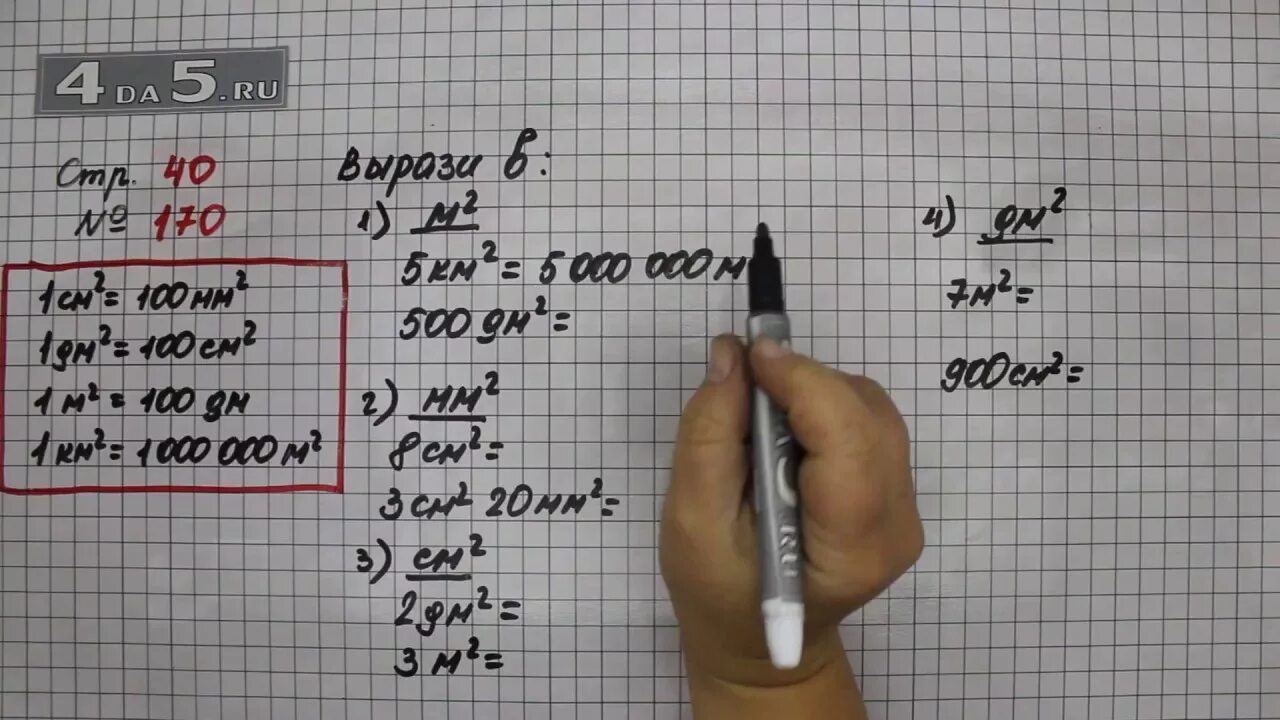 4DA5.RU
Стр. 40
№ 170
1 см² = 100 мм²
1 дм² = 100 см²
1 м² = 100 дм
1 км² = 1 000 000 м²
Вырази в:
1) м²
5 км² = 5 000 000 м
500 дм² =
2) мм²
8 см² =
3 см² 20 мм² =
3) см²
2 дм² =
3 м² =
4) дм²
7 м² =
900 см² =